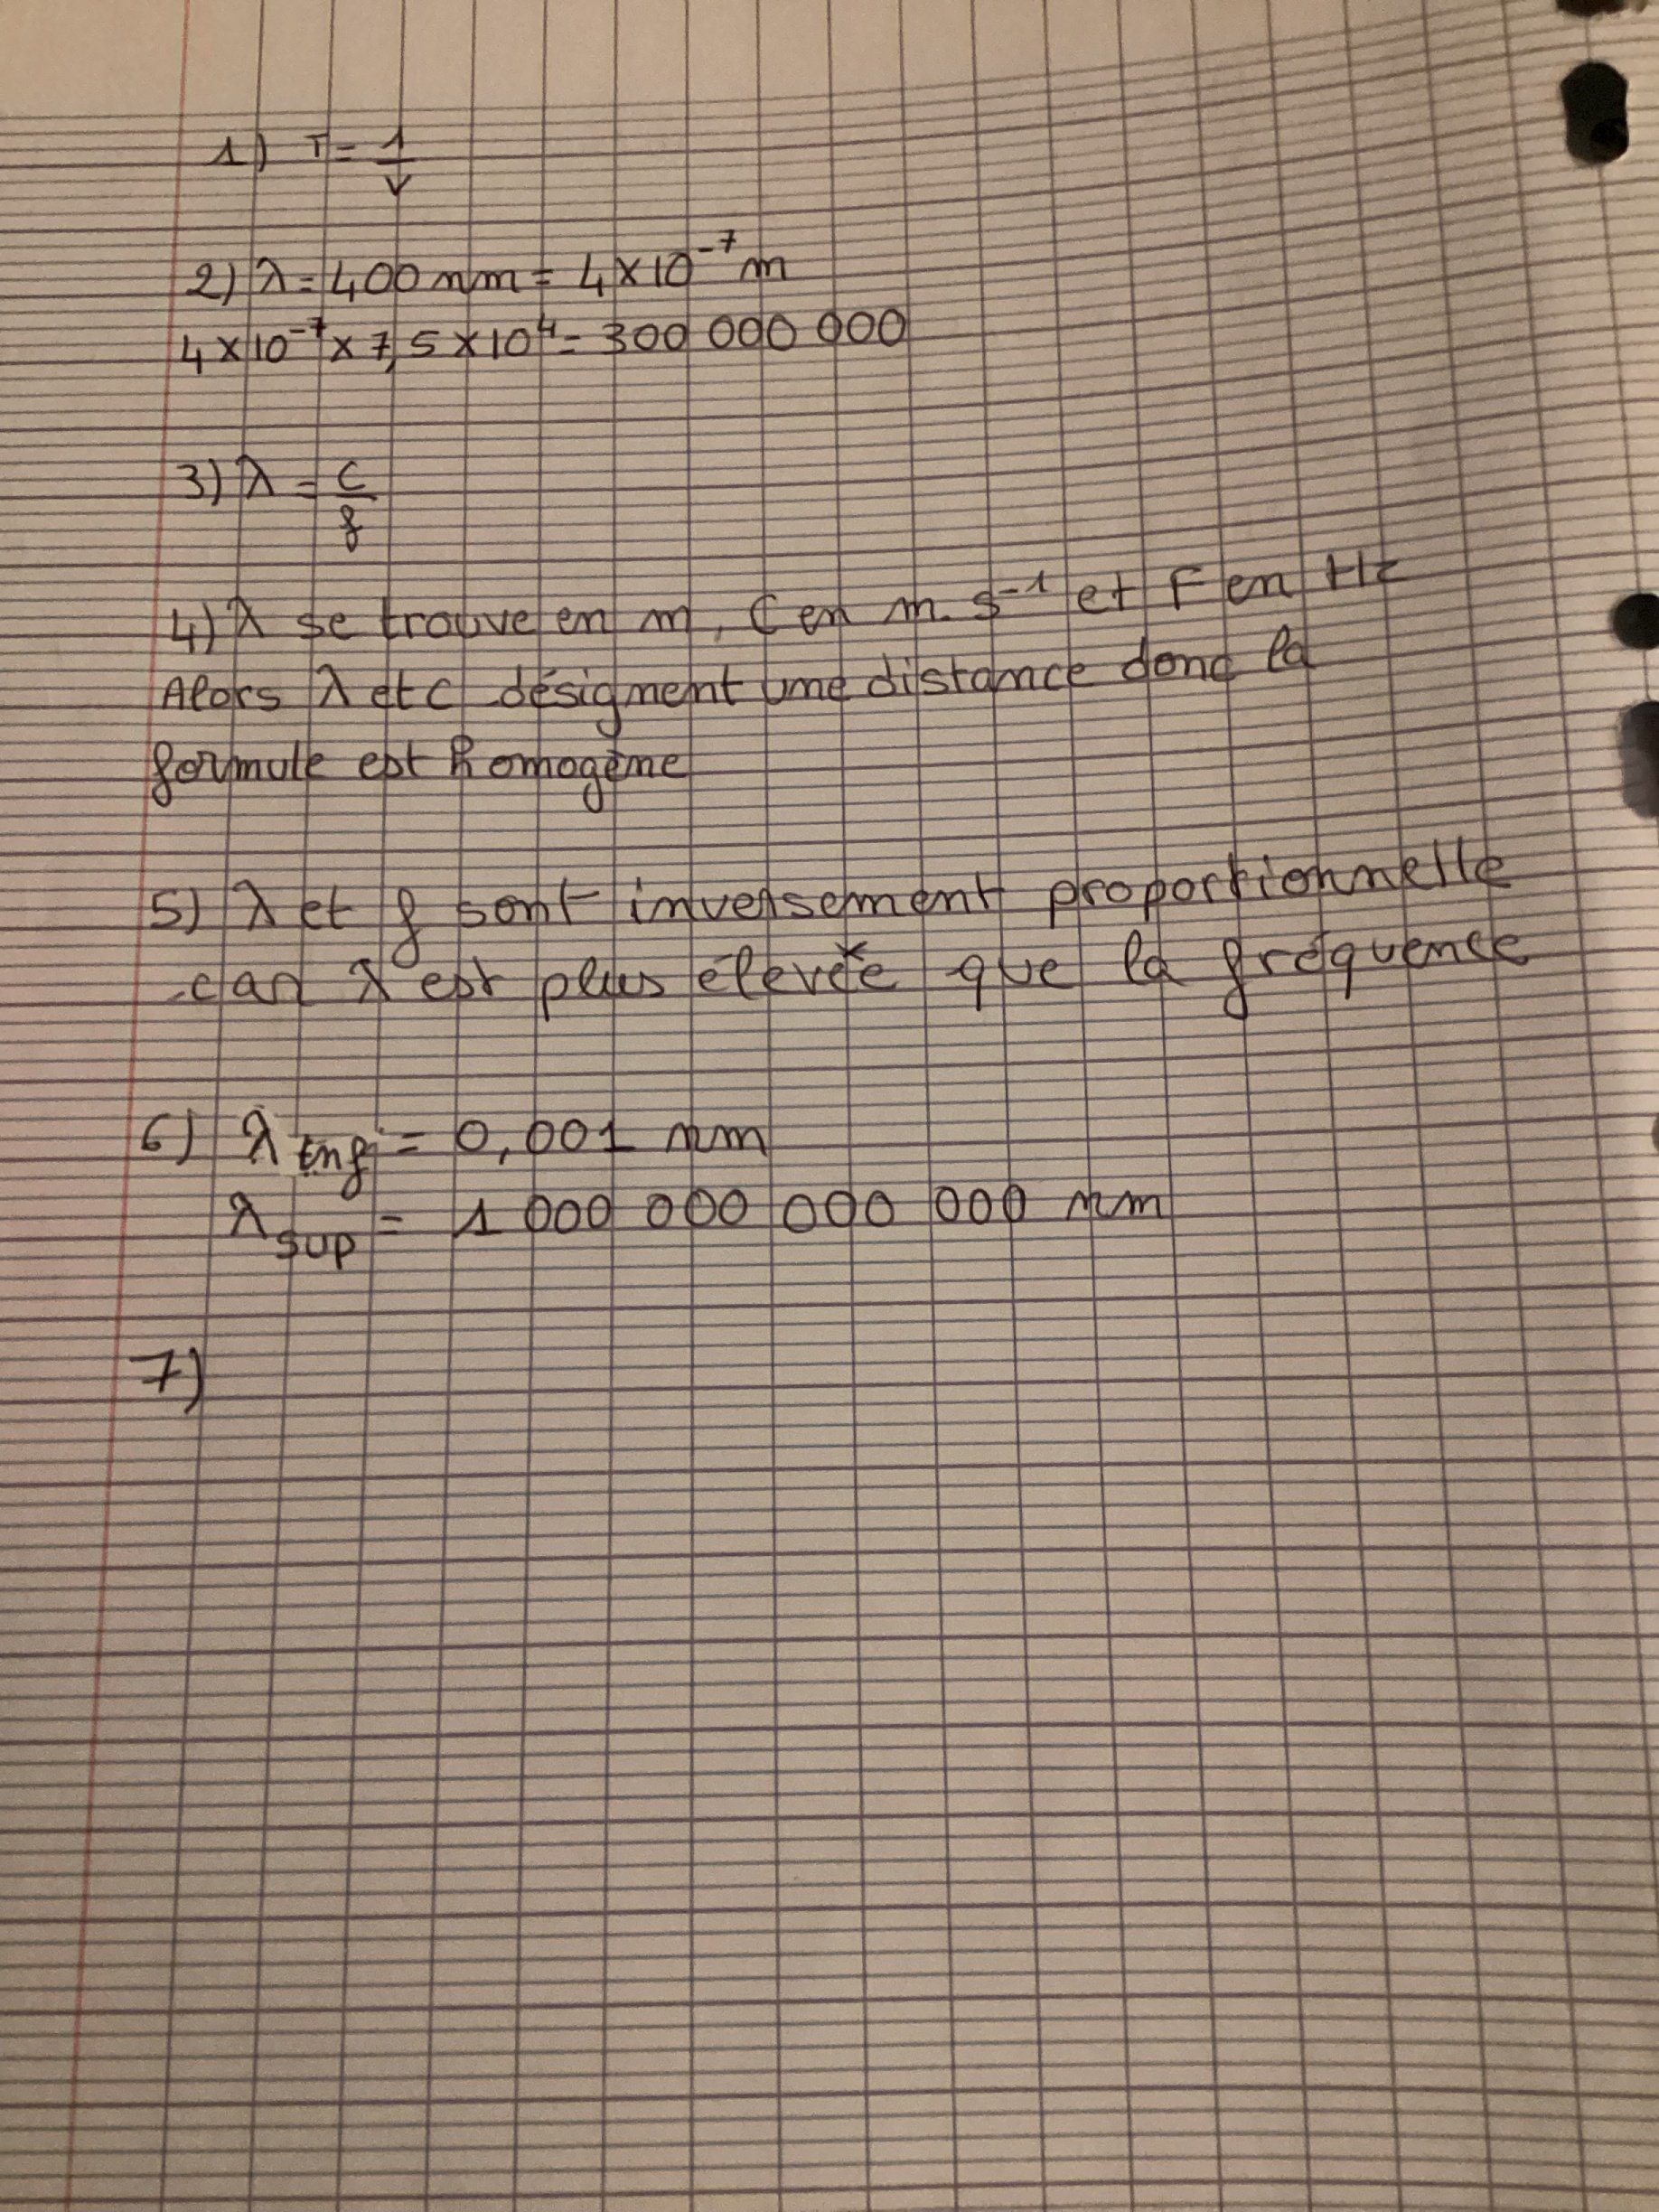 1) T = 1/v
2) λ = 400 nm = 4 × 10⁻⁷ m
4 × 10⁻⁷ × 7,5 × 10⁴ = 300 000 000
3) λ = c/f
4) λ se trouve en m, C en m. s⁻¹ et F en Hz
Alors λ et c désignent une distance donc la
formule est homogène
5) λ et f sont inversement proportionnelle
car λ est plus élevée que la fréquence
6) λ inf = 0,001 nm
λ sup = 1 000 000 000 000 nm
7)